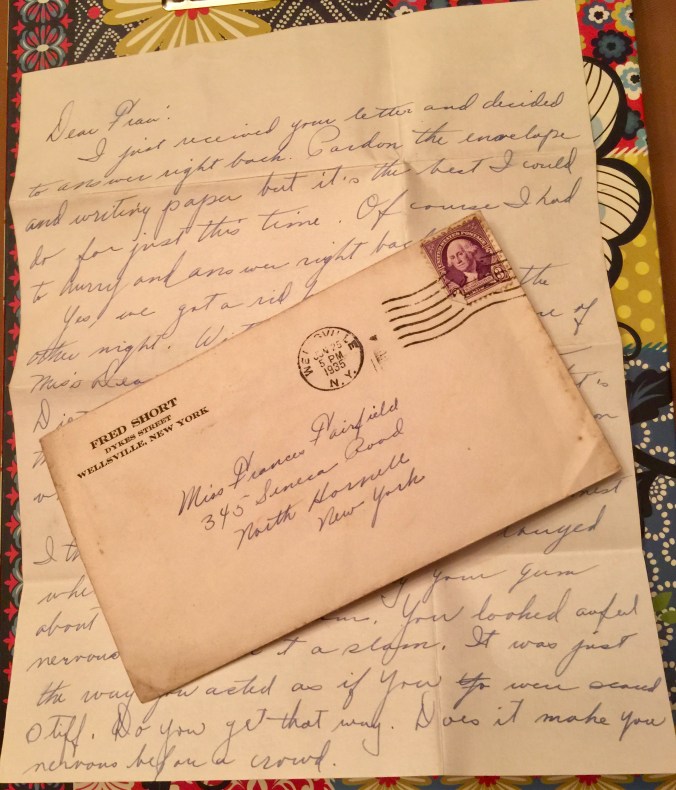 Dear Fran:
I just received your letter and decided
to answer right back. Pardon the envelope
and writing paper but it's the best I could
do for just this time. Of course I had
to hurry and answer right back
Yes, we got a rid the
other night. of
Miss
I
about
your gum
You looked awful
nervous a slam. It was just
the way you acted as if you were scared
stiff. Do you get that way. Does it make you
nervous before a crowd.
WELLSVILLE
5 PM
1935
N.Y.
FRED SHORT
DYKES STREET
WELLSVILLE, NEW YORK
Miss Frances Fairfield
345 Seneca Road
North Hornell
New York